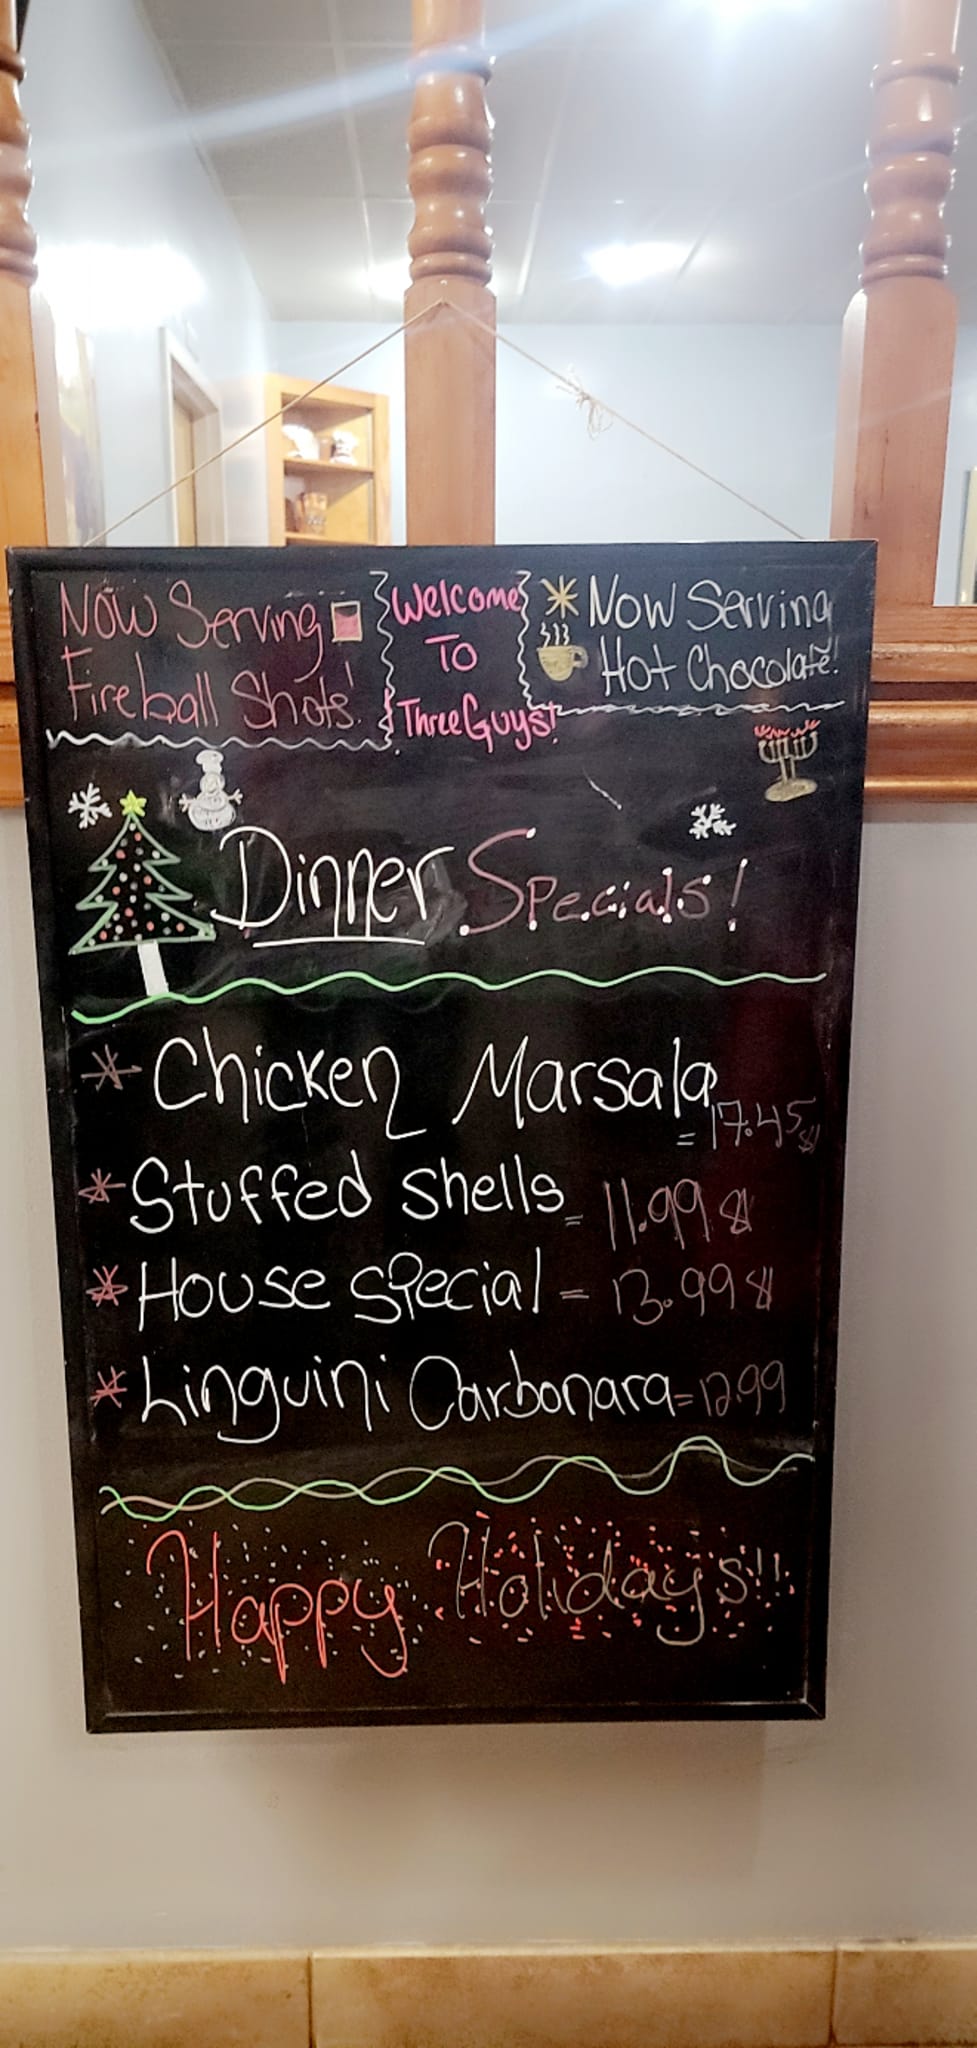 Now Serving
Fireball Shots!
Welcome
To
Three Guys!
Now Serving
Hot Chocolate!
Dinner Specials!
* Chicken Marsala
= 17.45 $
* Stuffed Shells = 11.99 $
* House Special = 13.99 $
* Linguini Carbonara = 12.99
Happy Holidays!!